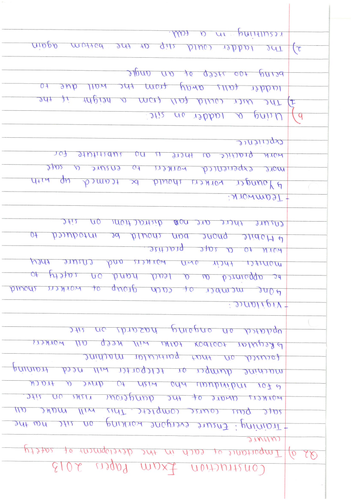 Construction Exam Papers 2013
Q2 a) Importance of each in the development of safety
culture
- Training: Ensure everyone working on site has the
safe pass course complete. This will make all
workers aware of the dangerous risks on site
↳ For individual who wish to drive a track
machine dumper or teleporter will need training
focused on that particular machine
↳ Regular toolbox talks will keep all workers
updated on ongoing hazards on site
- Vigilance:
↳ One member of each group of workers should
be appointed as a lead hand on safety to
monitor their own workers and ensure they
work to a safe practise
↳ Mobile phone ban should be introduced to
ensure there are no distractions on site
- Teamwork:
↳ Younger workers should be teamed up with
more experienced workers to ensure a safe
work practice as there is no substitute for
experience
b) Using a ladder on site
1) The user could fall from a height if the
ladder falls away from the wall due to
being too steep of an angle
2) The ladder could slip at the bottom again
resulting in a fall